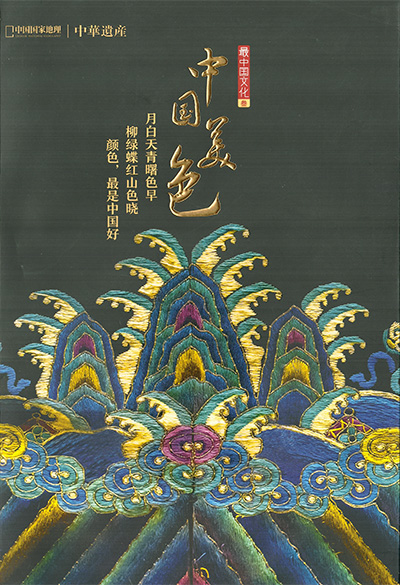 中国国家地理 | 中華遺産
最中国文化 叁
中国美色
月白天青曙色早
柳绿蝶红山色晓
颜色，最是中国好